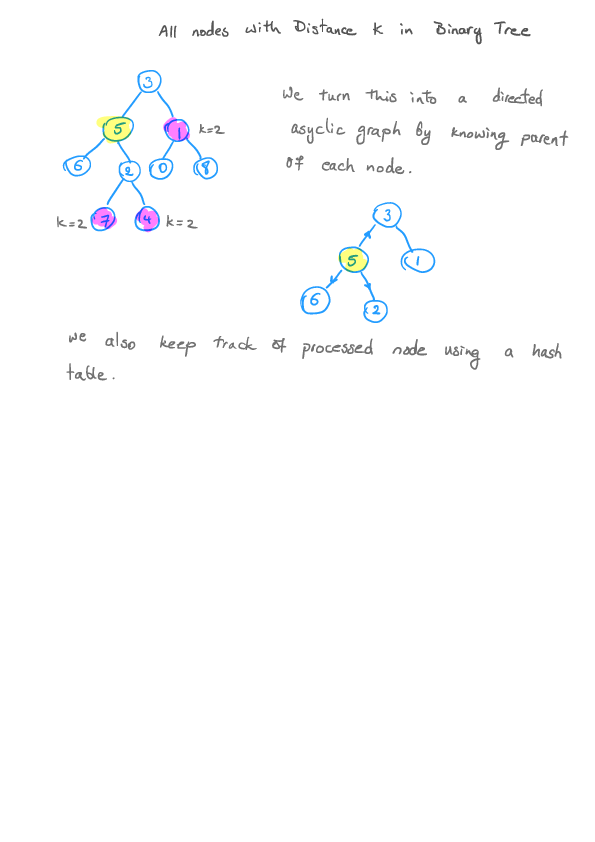 All nodes with Distance K in Binary Tree
3
5
1
K=2
6
2
0
8
K=2
7
4
K=2
We turn this into a directed
asyclic graph by knowing parent
of each node.
3
5
1
6
2
we also keep track of processed node using a hash
table.